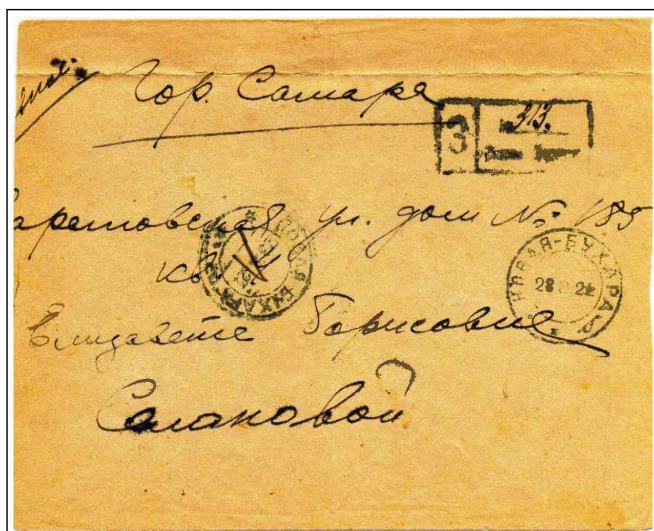 Гор. Самара
З 313.
Саратовская ул. дом № 185
кв.
НОВАЯ-БУХАРА
НОВАЯ-БУХАРА
Елизавете Борисовне